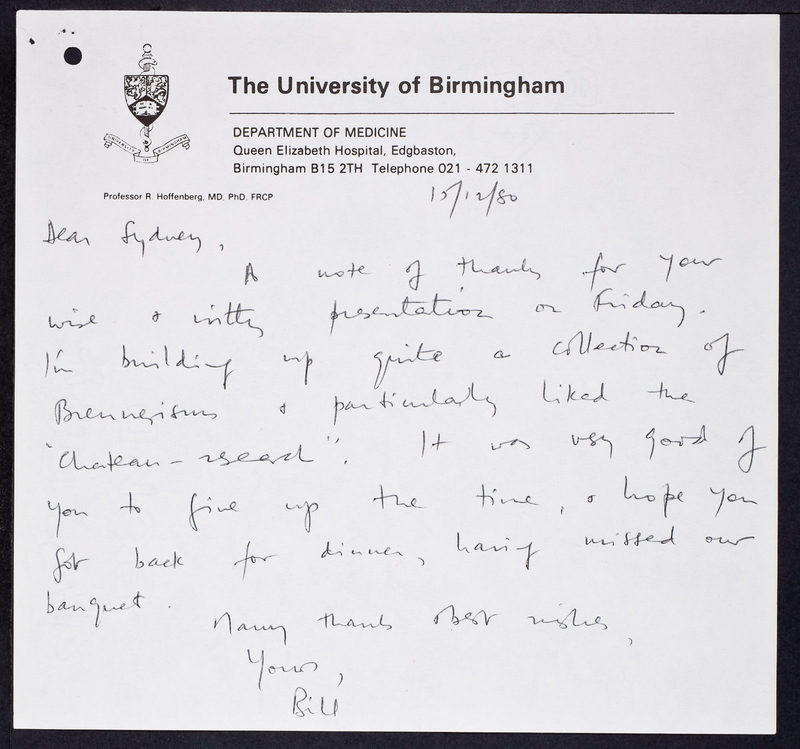 The University of Birmingham
UNIVERSITY OF BIRMINGHAM
DEPARTMENT OF MEDICINE
Queen Elizabeth Hospital, Edgbaston,
Birmingham B15 2TH Telephone 021 - 472 1311
Professor R. Hoffenberg, MD, PhD, FRCP
15/12/80
Dear Sydney,
A note of thanks for your
wise & witty presentation on Friday.
I'm building up quite a collection of
Brennerisms & particularly liked the
"Chateau-research". It was very good of
you to give up the time, & hope you
got back for dinner, having missed our
banquet.
Many thanks & best wishes,
Yours,
Bill